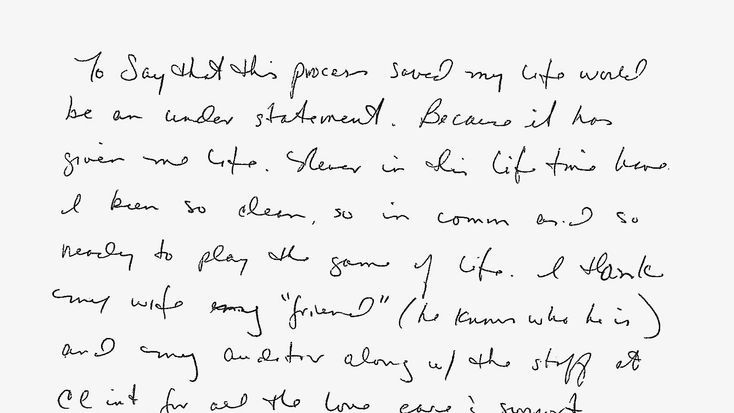 To Say that this process saved my life would
be an under statement. Because it has
given me life. Never in this life time have
I been so clean, so in comm and so
ready to play the game of life. I thank
my wife my "friend" (he knows who he is)
and my auditor along w/ the staff at
CC int for all the love care & support